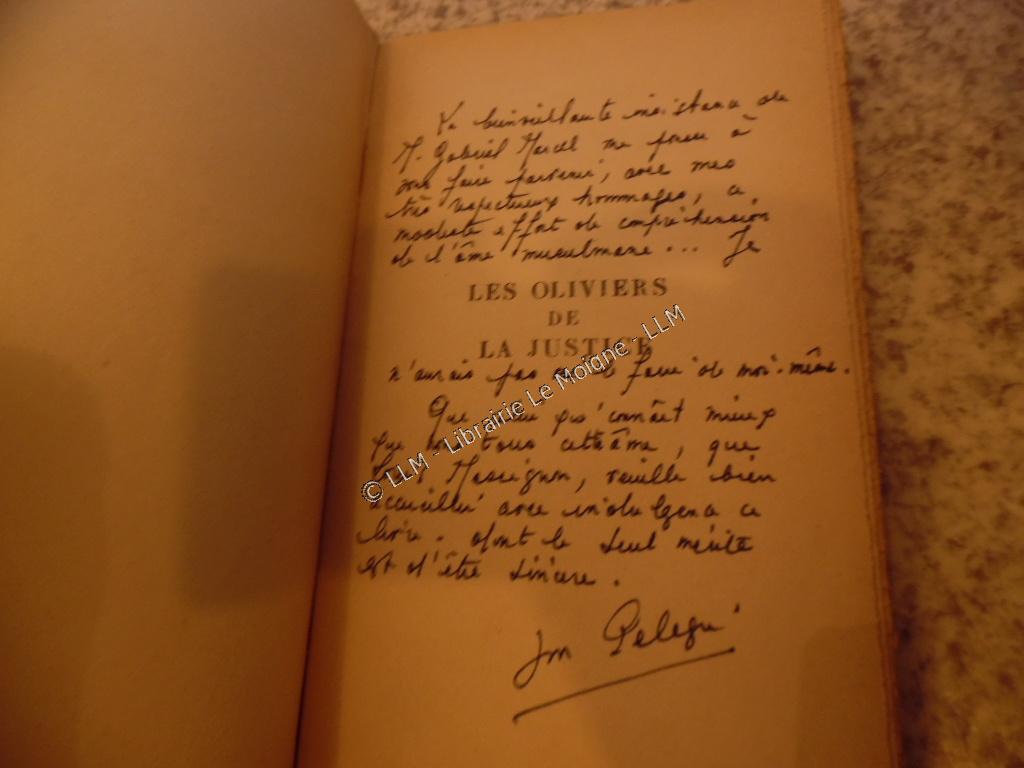 La bienveillante insistance de
M. Gabriel Marcel me pousse à
vous faire parvenir, avec mes
très respectueux hommages, ce
modeste effort de compréhension
de l'âme musulmane... Je
LES OLIVIERS
DE
LA JUSTICE
n'aurais pas osé le faire de moi-même.
Que celui qui connaît mieux
que nous tous cette âme, que
Massignon, veuille bien
accueillir avec indulgence ce
livre. dont le seul mérite
est d'être sincère.
Jean Pelegri
© LLM - Librairie Le Moigne - LLM